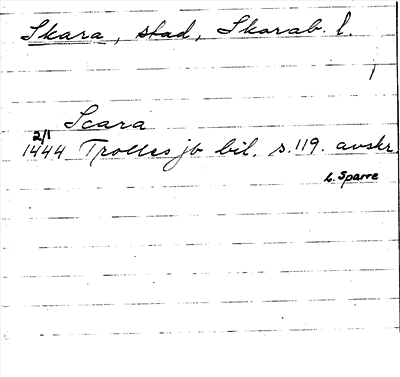 Skara, stad, Skarab. l.
1
Scara
2/1
1444 Trolles jb bil. s. 119. avskr.
L. Sparre